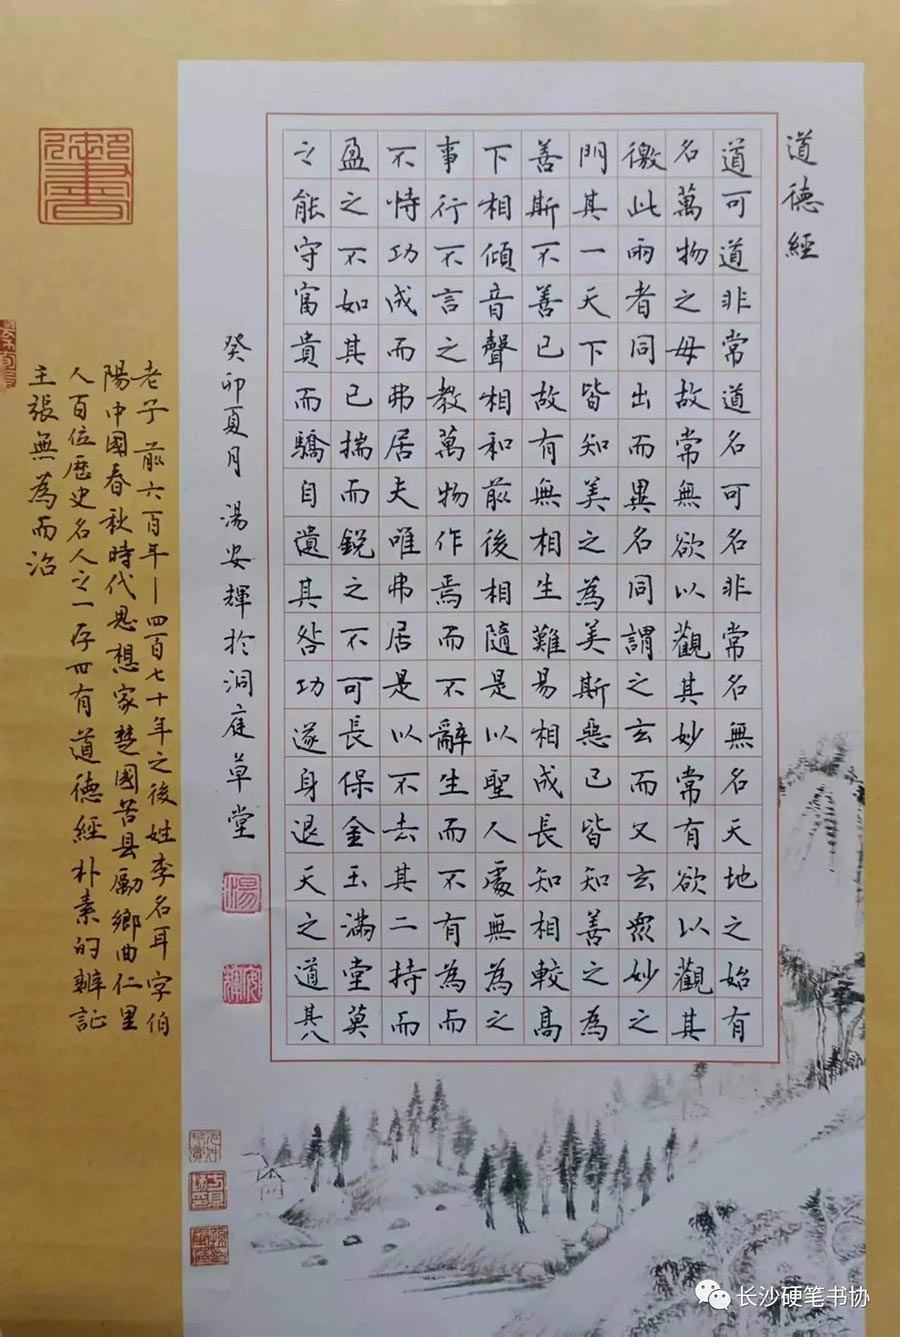 道德經
道可道非常道名可名非常名無名天地之始有
名萬物之母故常無欲以觀其妙常有欲以觀其
徼此兩者同出而異名同謂之玄而又玄衆妙之
門其一天下皆知美之為美斯惡已皆知善之為
善斯不善已故有無相生難易相成長知相較高
下相傾音聲相和前後相隨是以聖人處無為之
事行不言之教萬物作焉而不辭生而不有為而
不恃功成而弗居夫唯弗居是以不去其二持而
盈之不如其已揣而銳之不可長保金玉滿堂莫
之能守富貴而驕自遺其咎功遂身退天之道其八
癸卯夏月湯安輝於洞庭草堂
老子前六百年—四百七十年之後姓李名耳字伯
陽中國春秋時代思想家楚國苦县勵鄉曲仁里
人百位歷史名人之一存世有道德經朴素的辨証
主張無為而治
长沙硬笔书协